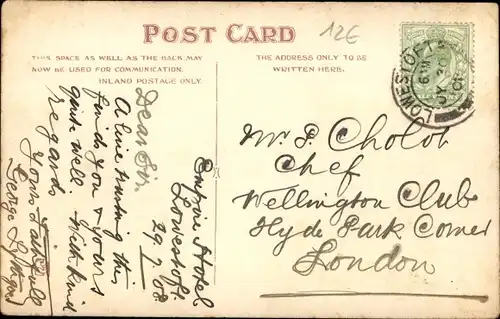 POST CARD
12E
THIS SPACE AS WELL AS THE BACK MAY
NOW BE USED FOR COMMUNICATION.
INLAND POSTAGE ONLY.
THE ADDRESS ONLY TO BE
WRITTEN HERE.
LOWESTOFT
JY 30
Empire Hotel
Lowestoft.
29.7.08
Dear Sir.
A line trusting this
finds you & yours
quite well. With kind
regards
Yours Faithfull
George
Mr. P. Cholot
Chef
Wellington Club
Hyde Park Corner
London